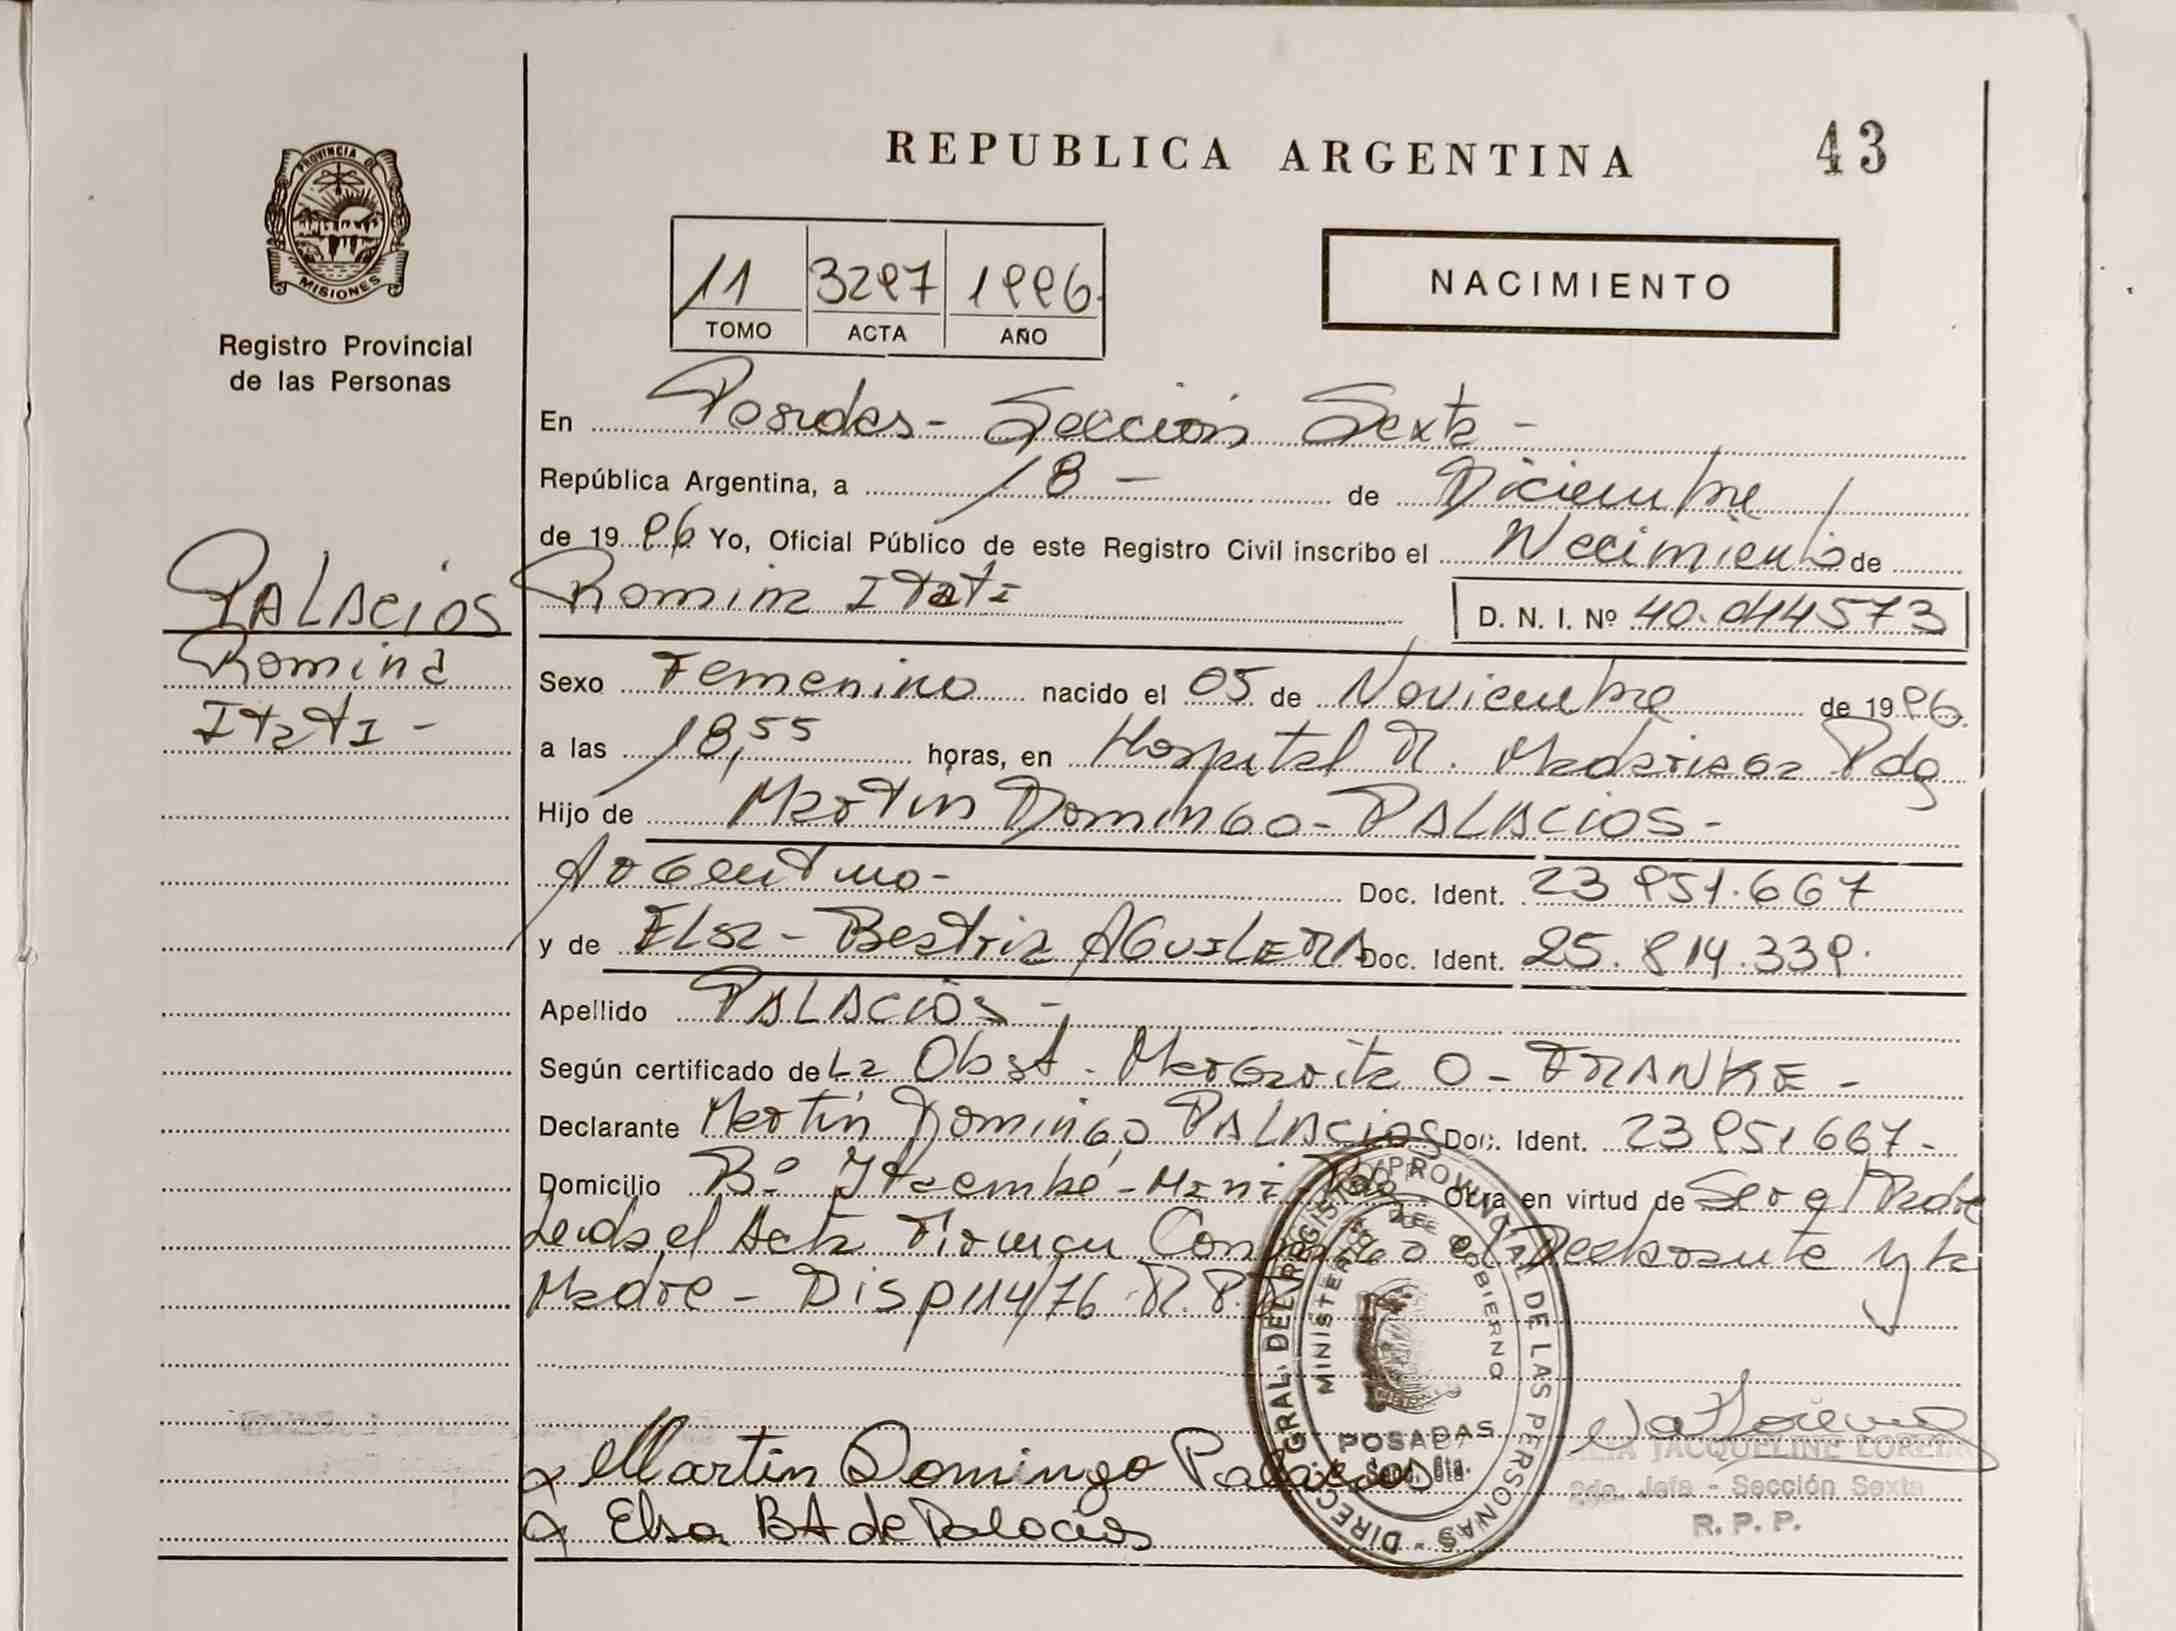 REPUBLICA ARGENTINA
43
PROVINCIA DE
MISIONES
Registro Provincial
de las Personas
11 3297 1996
TOMO ACTA AÑO
NACIMIENTO
En Posadas - Sección Sexta -
República Argentina, a 18 - de Diciembre
de 1996 Yo, Oficial Público de este Registro Civil inscribo el Nacimiento de
Romina Itatí D. N. I. Nº 40.044573
PALACIOS
Romina
Itatí -
Sexo Femenino nacido el 05 de Noviembre de 1996
a las 18,55 horas, en Hospital R. Madariaga Pdas
Hijo de Martin Domingo - PALACIOS -
Argentino - Doc. Ident. 23 951.667
y de Elsa - Beatriz AGUILERA Doc. Ident. 25.814.339.
Apellido PALACIOS -
Según certificado de La Obst. Margarita O - FRANKE -
Declarante Martín Domingo PALACIOS Doc. Ident. 23 951 667 -
Domicilio Bº Itaembé - Mini - Obra en virtud de Ser el Padre
Leida el Acta Firman el Declarante y la
Madre - Disp 114/76 R.P.
DIREC. GRAL. DEL REGISTRO PROVINCIAL DE LAS PERSONAS
MINISTERIO DE GOBIERNO
POSADAS
Secc. 6ta.
Martin Domingo Palacios
Elsa BA de Palacios
JACQUELINE
Jefa - Sección Sexta
R. P. P.